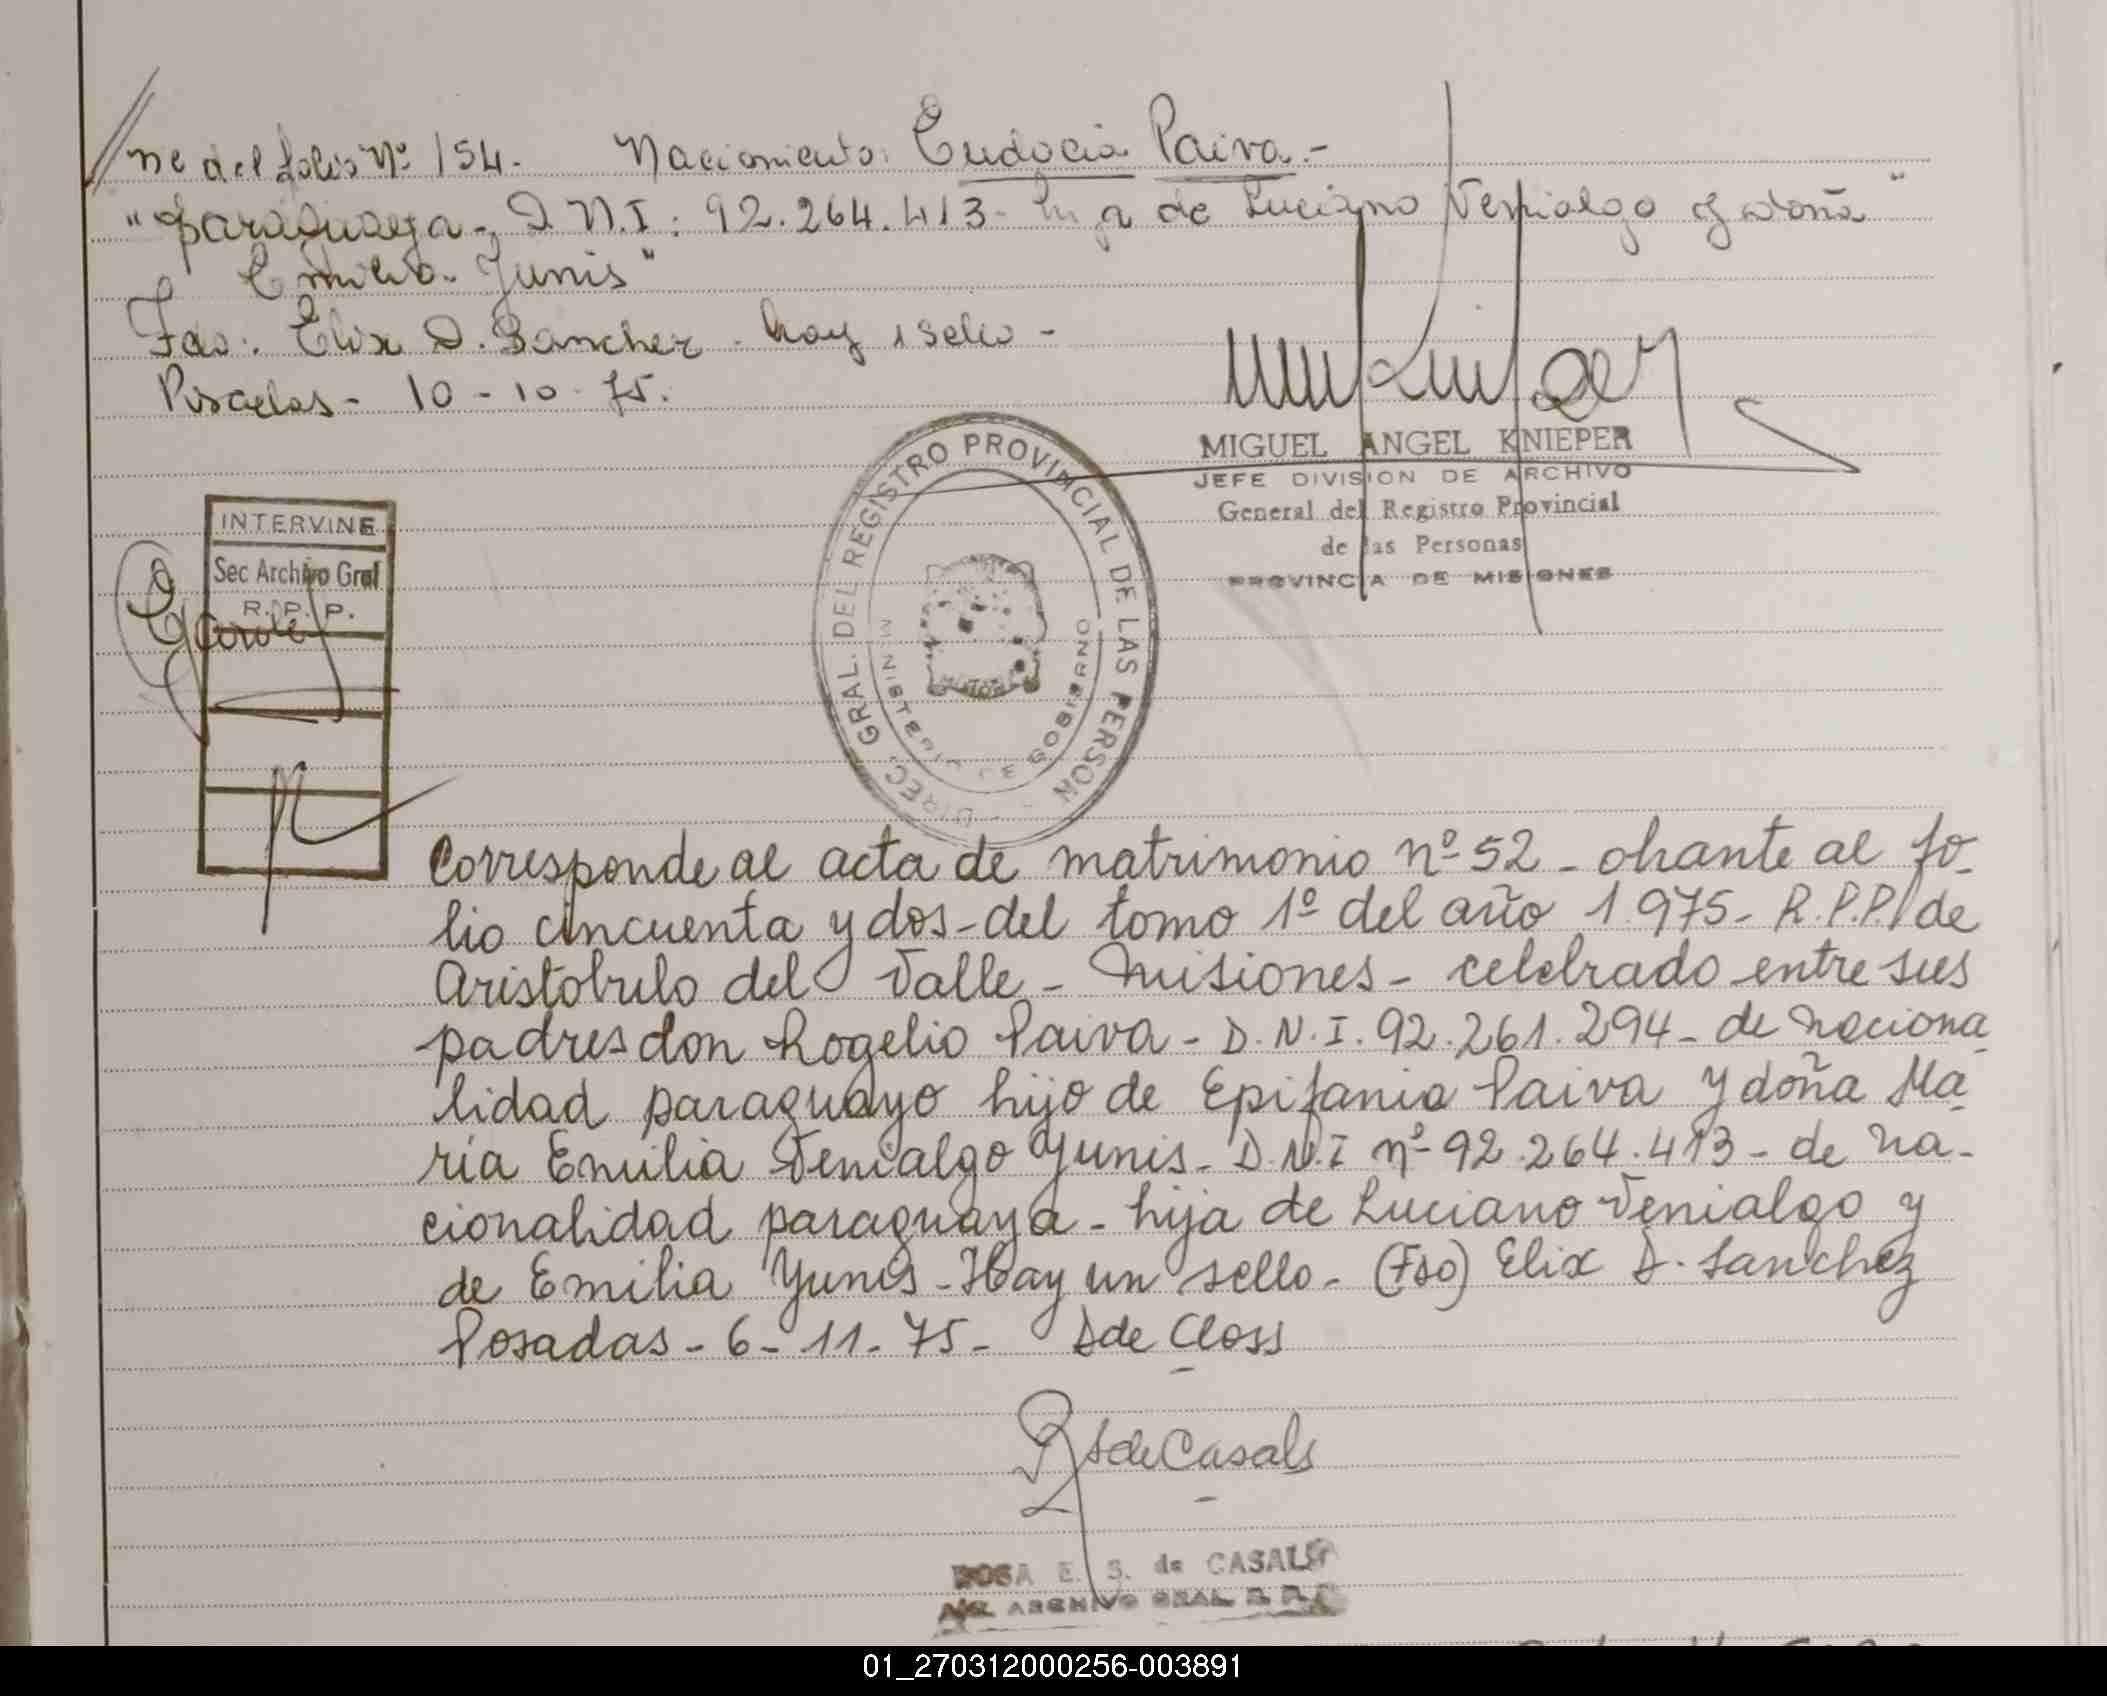 ne del folio Nº 154. Nacimiento: Eudocia Paiva.-
"paraguaya-, D.N.I: 92.264.413- hija de Luciano Venialgo y doña"
Emilia- Yunis"
Fdo: Elix D. Sanchez - hay 1 sello -
Posadas - 10 - 10 - 75.
MIGUEL ANGEL KNIEPER
JEFE DIVISION DE ARCHIVO
General del Registro Provincial
de las Personas
PROVINCIA DE MISIONES
DIREC. GRAL. DEL REGISTRO PROVINCIAL DE LAS PERSON
MINISTERIO DE GOBIERNO
INTERVINE
Sec Archivo Gral
R. P. P.
Corresponde al acta de matrimonio nº 52 - obrante al fo-
lio cincuenta y dos - del tomo 1º del año 1.975 - R.P.P. de
Aristobulo del Valle - Misiones - celebrado entre sus
padres don Rogelio Paiva - D.N.I. 92.261.294 - de naciona-
lidad paraguayo hijo de Epifania Paiva y doña Ma-
ría Emilia Venialgo Yunis - D.N.I nº 92.264.413 - de na-
cionalidad paraguaya - hija de Luciano Venialgo y
de Emilia Yunis - Hay un sello - (Fdo) Elix D. Sanchez
Posadas - 6 - 11 - 75 - S de Closs
S de Casals
ROSA E. S. de CASALS
ARCHIVO GRAL R. P. P.
01_270312000256-003891